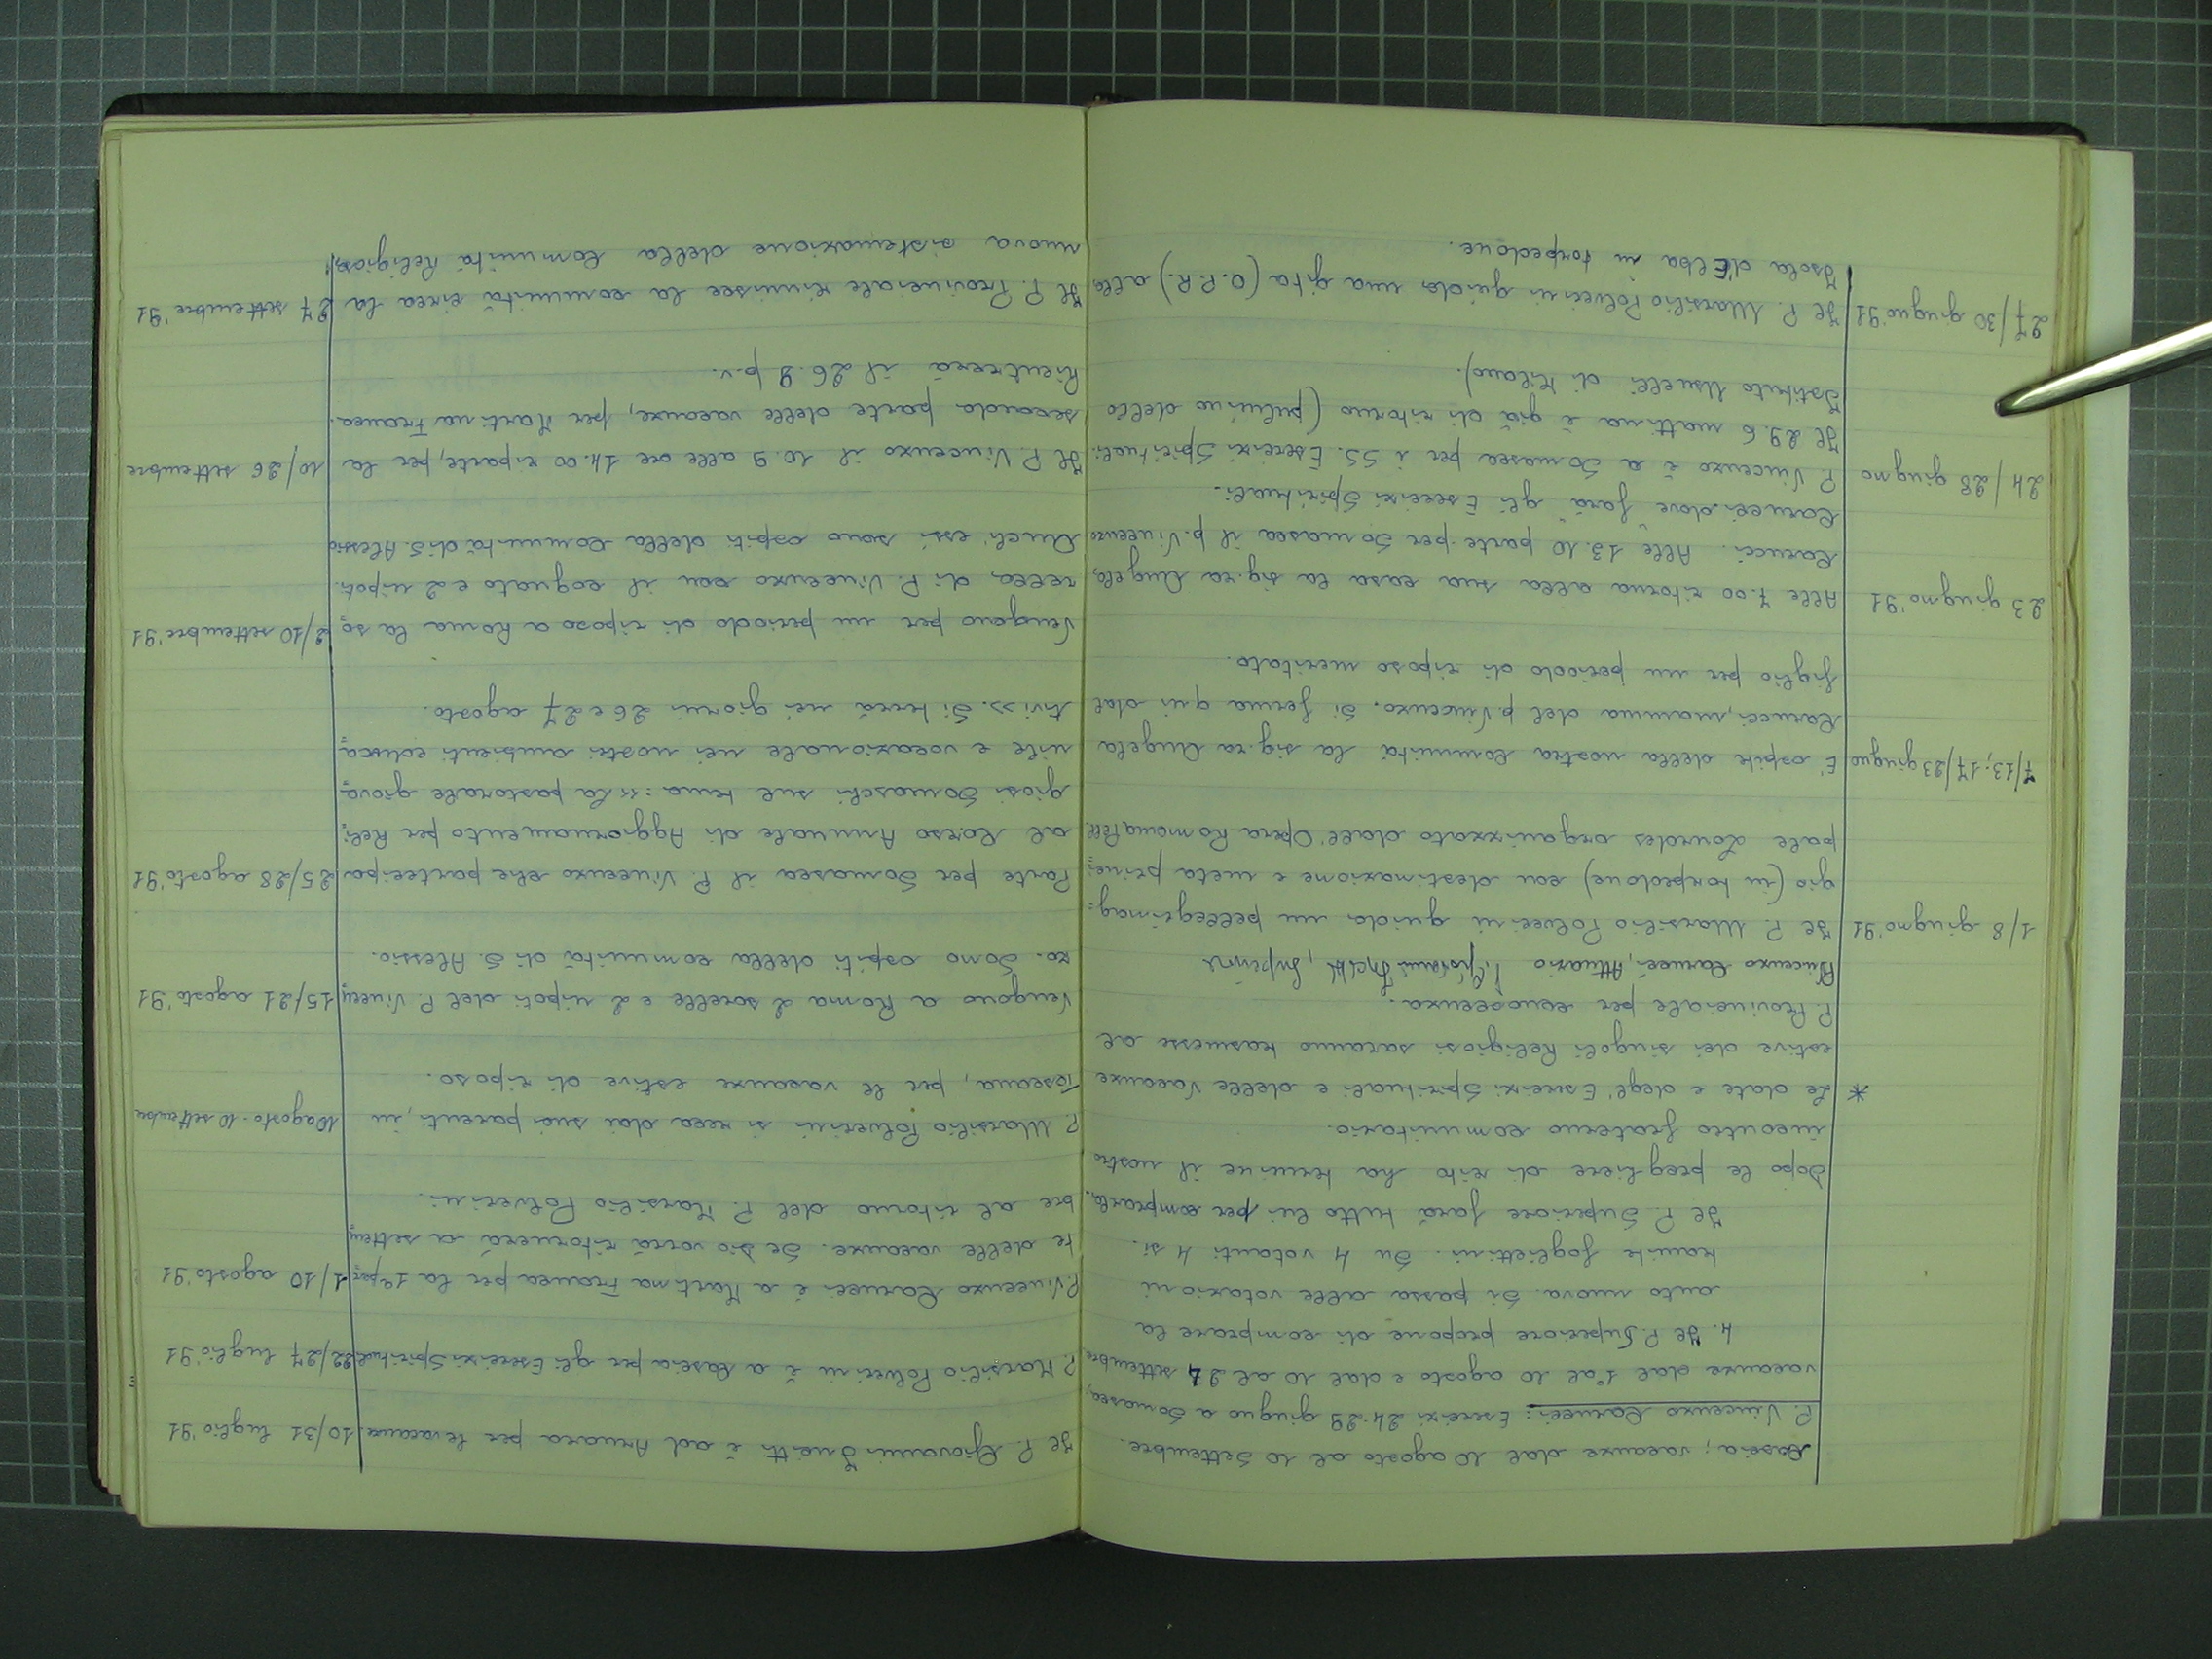 Cascia; vacanze dal 10 agosto al 10 Settembre.
P. Vincenzo Carucci: Esercizi 24-29 giugno a Somasca,
vacanze dal 1° al 10 agosto e dal 10 al 24 settembre.
4. Il P. Superiore propone di comprare la
auto nuova. Si passa alle votazioni
tramite fogliettini. Su 4 votanti 4 si.
Il P. Superiore farà tutto lui per comprarla.
Dopo le preghiere di rito ha termine il nostro
incontro fraterno comunitario.
* Le date e degl'Esercizi Spirituali e delle Vacanze
estive dei singoli Religiosi saranno trasmesse al
P. Provinciale per conoscenza.
Vincenzo Carucci, Attuario P. Giovanni
1/8 giugno '91 Il P. Marsilio Polverini guida un pellegrinag:
gio (in torpedone) con destinazione e meta princi:
pale Lourdes organizzato dall'Opera Romana Pell.
7/13; 17/23 giugno E' ospite della nostra Comunità la sig.ra Angela
Carucci, mamma del p. Vincenzo. Si ferma qui dal
figlio per un periodo di riposo meritato.
23 giugno '91 Alle 7.00 ritorna alla sua casa la sig.ra Angela
Carucci. Alle 13.10 parte per Somasca il p. Vincenzo
Carucci dove farà gli Esercizi Spirituali.
24/28 giugno P. Vincenzo è a Somasca per i SS. Esercizi Spirituali.
Il 29.6 mattina è già di ritorno (pulmino dello
Istituto Usuelli di Milano).
27/30 giugno '91 Il P. Marsilio Polverini guida una gita (O.P.R.) alla
Isola d'Elba in torpedone.
Il P. Giovanni è ad Arvara per le vacanze. 10/31 luglio '91
P. Marsilio Polverini è a Cascia per gli Esercizi Spirituali 22/27 luglio '91
P. Vincenzo Carucci è a Martina Franca per la 1ª par: 1/10 agosto '91
te delle vacanze. Se Dio vorrà ritornerà a settem:
bre al ritorno del P. Marsilio Polverini.
P. Marsilio Polverini si reca dai suoi parenti, in 10 agosto - 10 settembre
Toscana, per le vacanze estive di riposo.
Vengono a Roma 2 sorelle e 2 nipoti del P. Vincen: 15/21 agosto '91
zo. Sono ospiti della comunità di S. Alessio.
Parte per Somasca il P. Vincenzo che partecipa 25/28 agosto '91
al Corso Annuale di Aggiornamento per Reli:
giosi Somaschi sul tema: << La pastorale giova:
nile e vocazionale nei nostri ambienti educa:
tivi >>. Si terrà nei giorni 26 e 27 agosto.
Vengono per un periodo di riposo a Roma la so: 2/10 settembre '91
rella di P. Vincenzo con il cognato e 2 nipoti.
Anch'essi sono ospiti della Comunità di S. Alessio
Il P. Vincenzo il 10.9 alle ore 14.00 riparte, per la 10/26 settembre
seconda parte delle vacanze, per Martina Franca.
Rientrerà il 26.9 p.v.
Il P. Provinciale riunisce la comunità circa la 27 settembre '91
nuova sistemazione della Comunità Religiosa